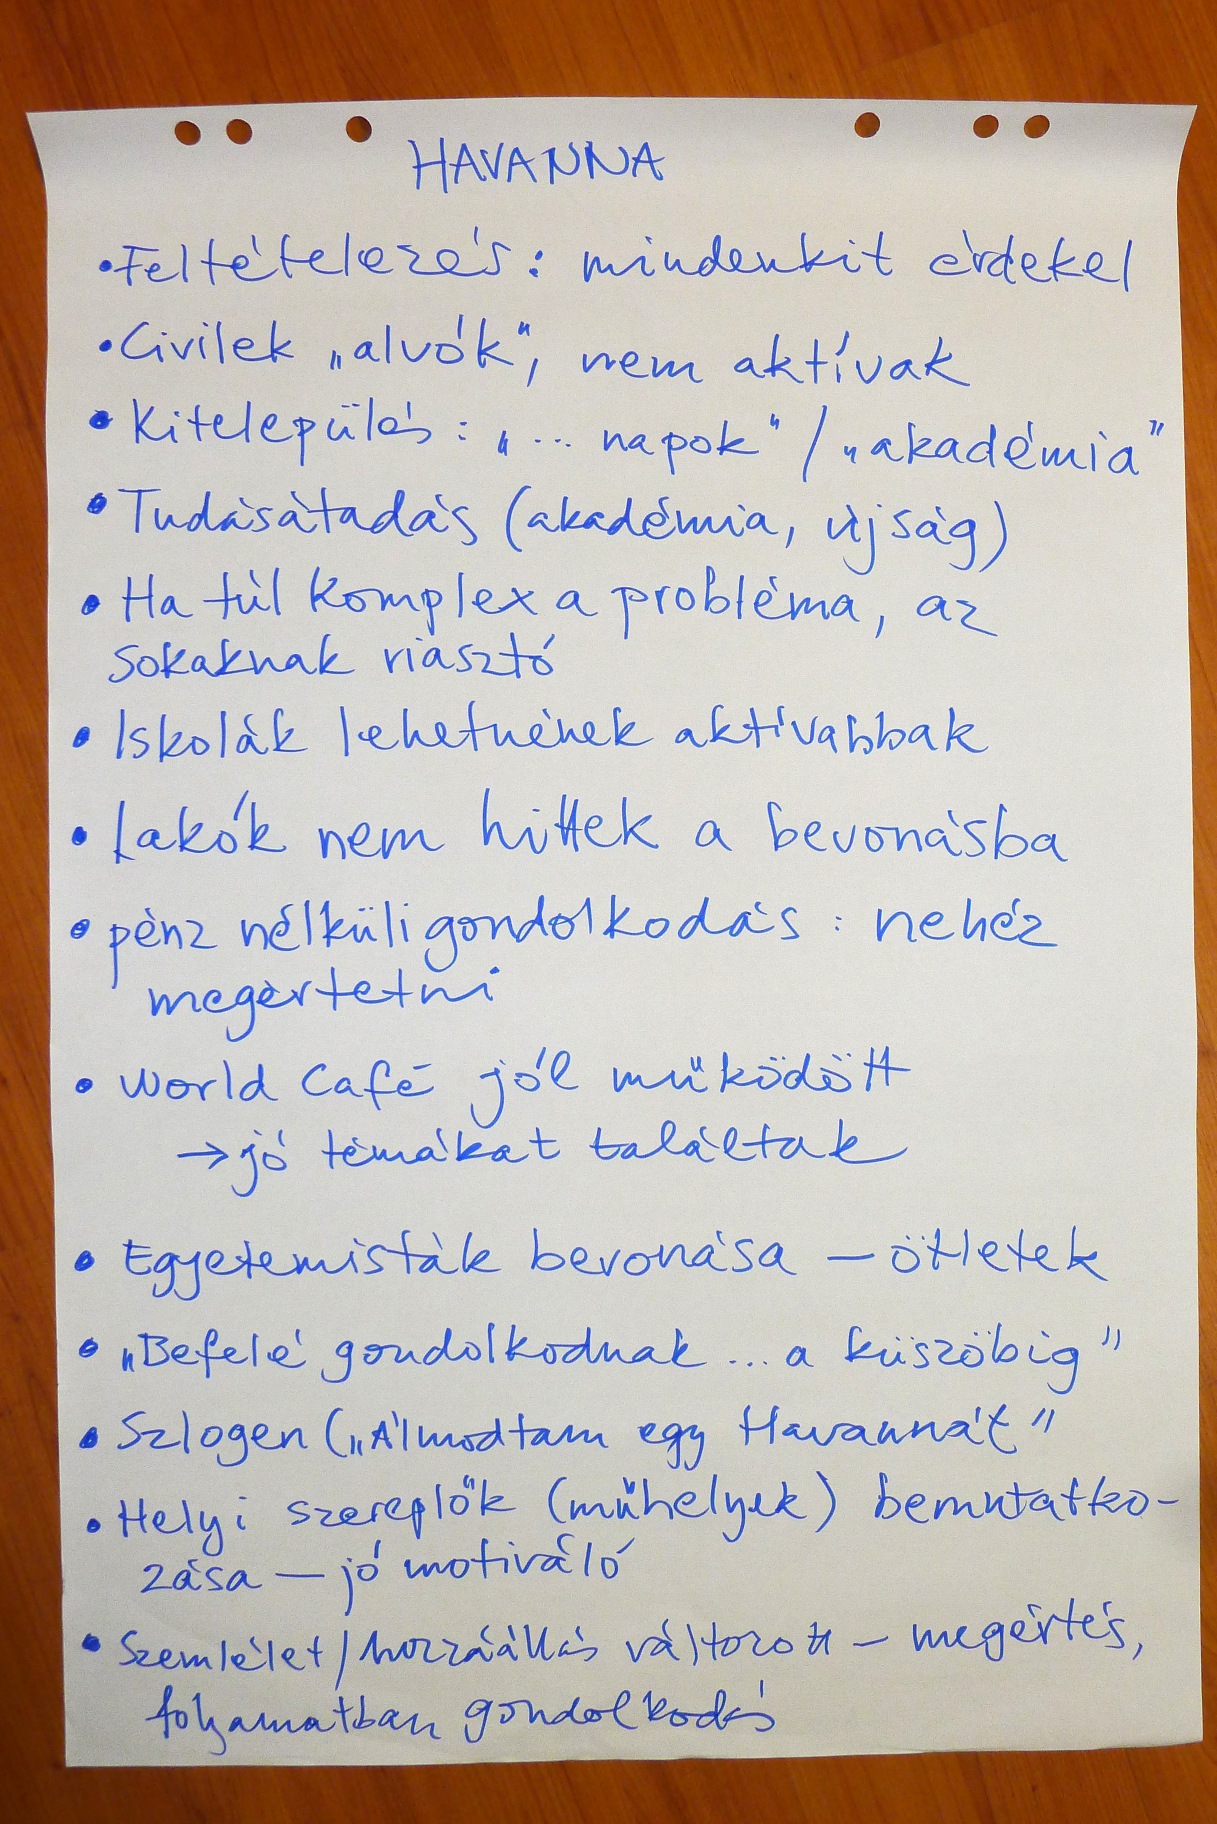 HAVANNA
• Feltételezés: mindenkit érdekel
• Civilek „alvók”, nem aktívak
• Kitelepülés: „... napok” / „akadémia”
• Tudásátadás (akadémia, újság)
• Ha túl komplex a probléma, az
sokaknak riasztó
• Iskolák lehetnének aktívabbak
• Lakók nem hittek a bevonásba
• pénz nélküli gondolkodás: nehéz
megértetni
• World Café jól működött
→ jó témákat találtak
• Egyetemisták bevonása – ötletek
• „Befelé gondolkodnak ... a küszöbig”
• Szlogen („Álmodtam egy Havannát”
• Helyi szereplők (műhelyek) bemutatko-
zása – jó motiváló
• Szemlélet/hozzáállás változott – megértés,
folyamatban gondolkodás